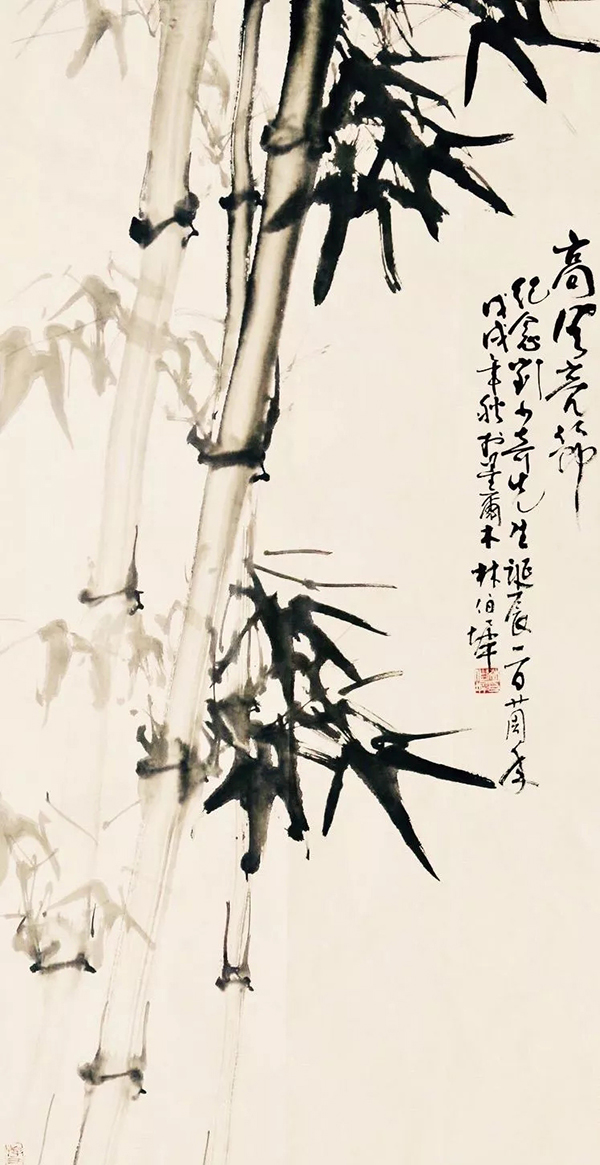 高風亮節
紀念劉少奇先生誕辰一百廿周年
戊戌年秋於墨爾本 林伯墀